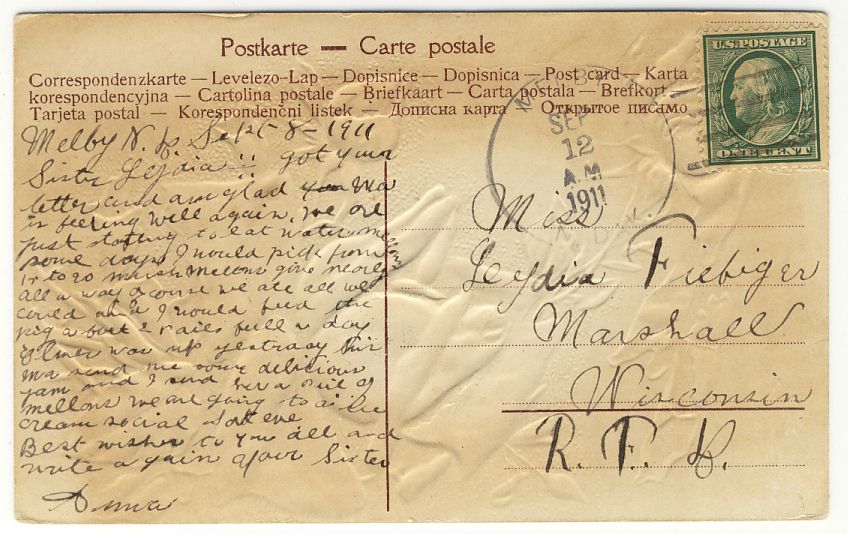 Postkarte — Carte postale
Correspondenzkarte — Levelezo-Lap — Dopisnice — Dopisnica — Post card — Karta
korespondencyjna — Cartolina postale — Briefkaart — Carta postala — Brefkort
Tarjeta postal — Korespondenčni listek — Дописна карта — Открытое писамо
U.S. POSTAGE
ONE CENT
SEP
12
A.M
1911
Melby N. D. Sept 8 - 1911
Sister Leydia!! got your
letter and am glad Ma
is feeling well again. we are
just starting to eat water mellons
some days I would pick from
15 to 20 mush mellons give nearly
all a way course we ate all we
could and I would feed the
pig a bout 2 pails full a day
was up yestraday his
ma send me some delicious
jam and I send her a pail of
mellons we are going to a ice
cream social eve
Best wishes to you all and
write again your Sister
Anna
Miss
Leydia Fiebiger
Marshall
Wisconsin
R. F. D.